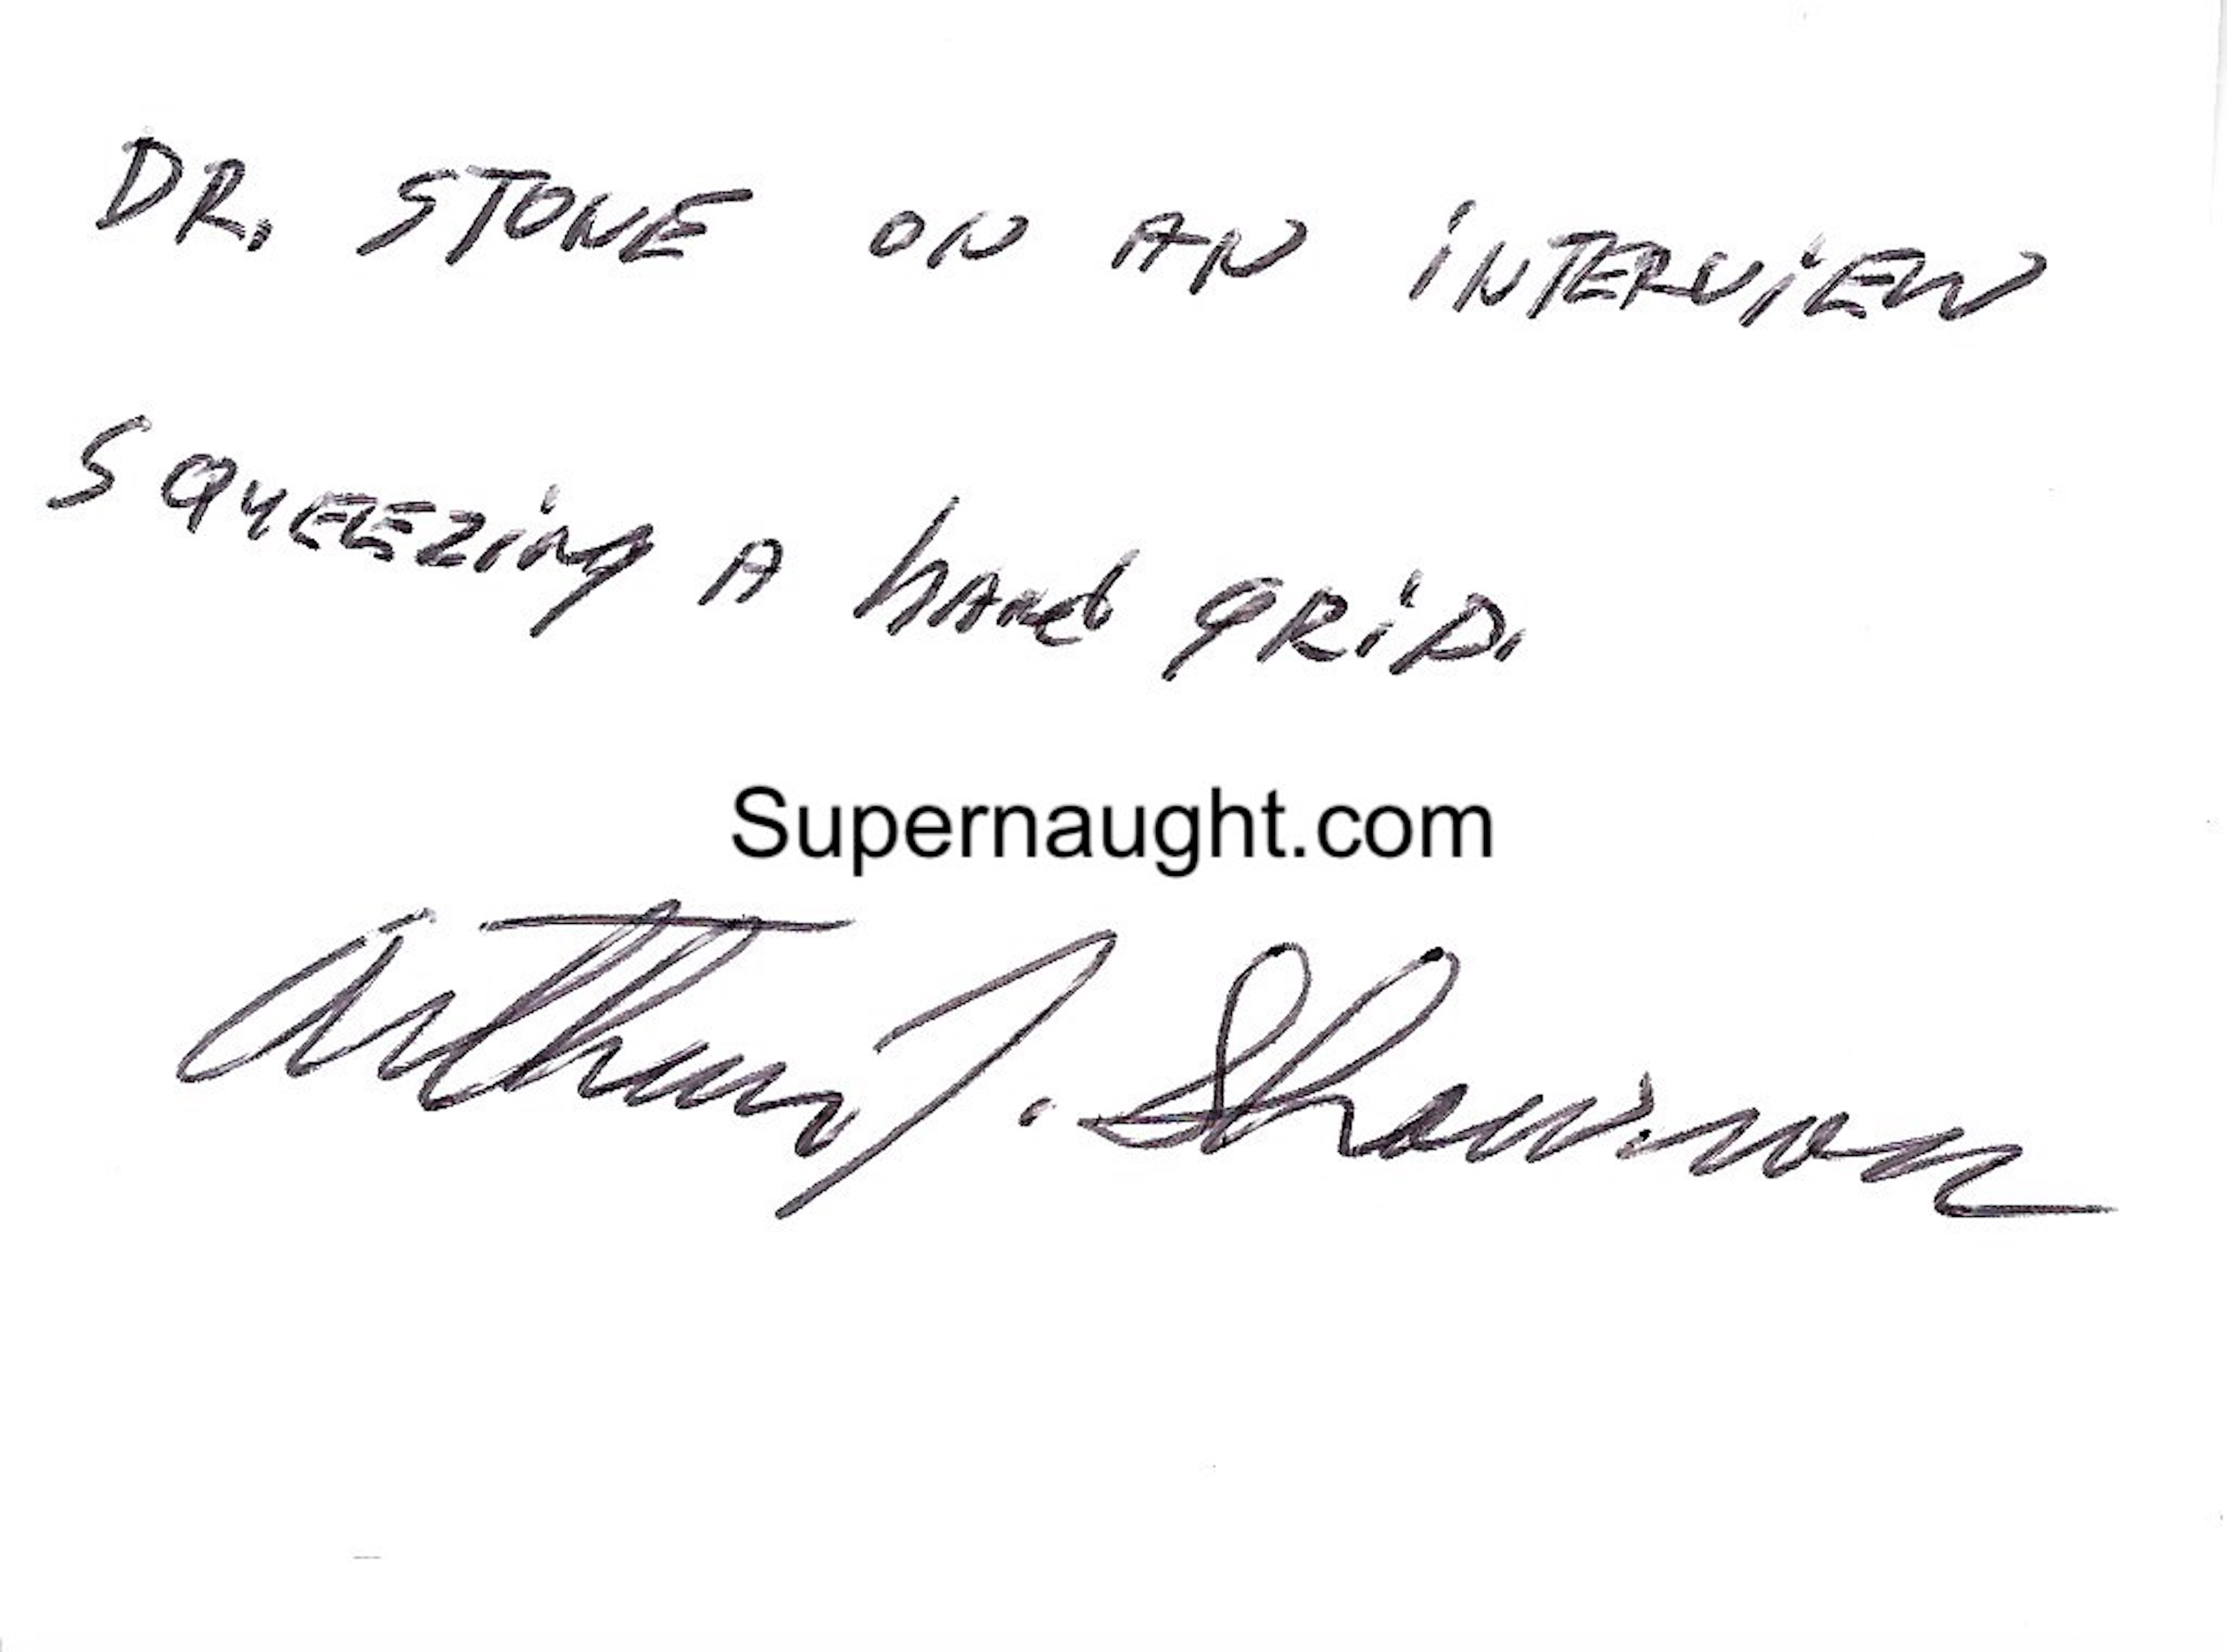 DR. STONE ON AN iNTERViEW
SQUEEZing A hANd gRiP.
Supernaught.com
Arthur J. Shawcross